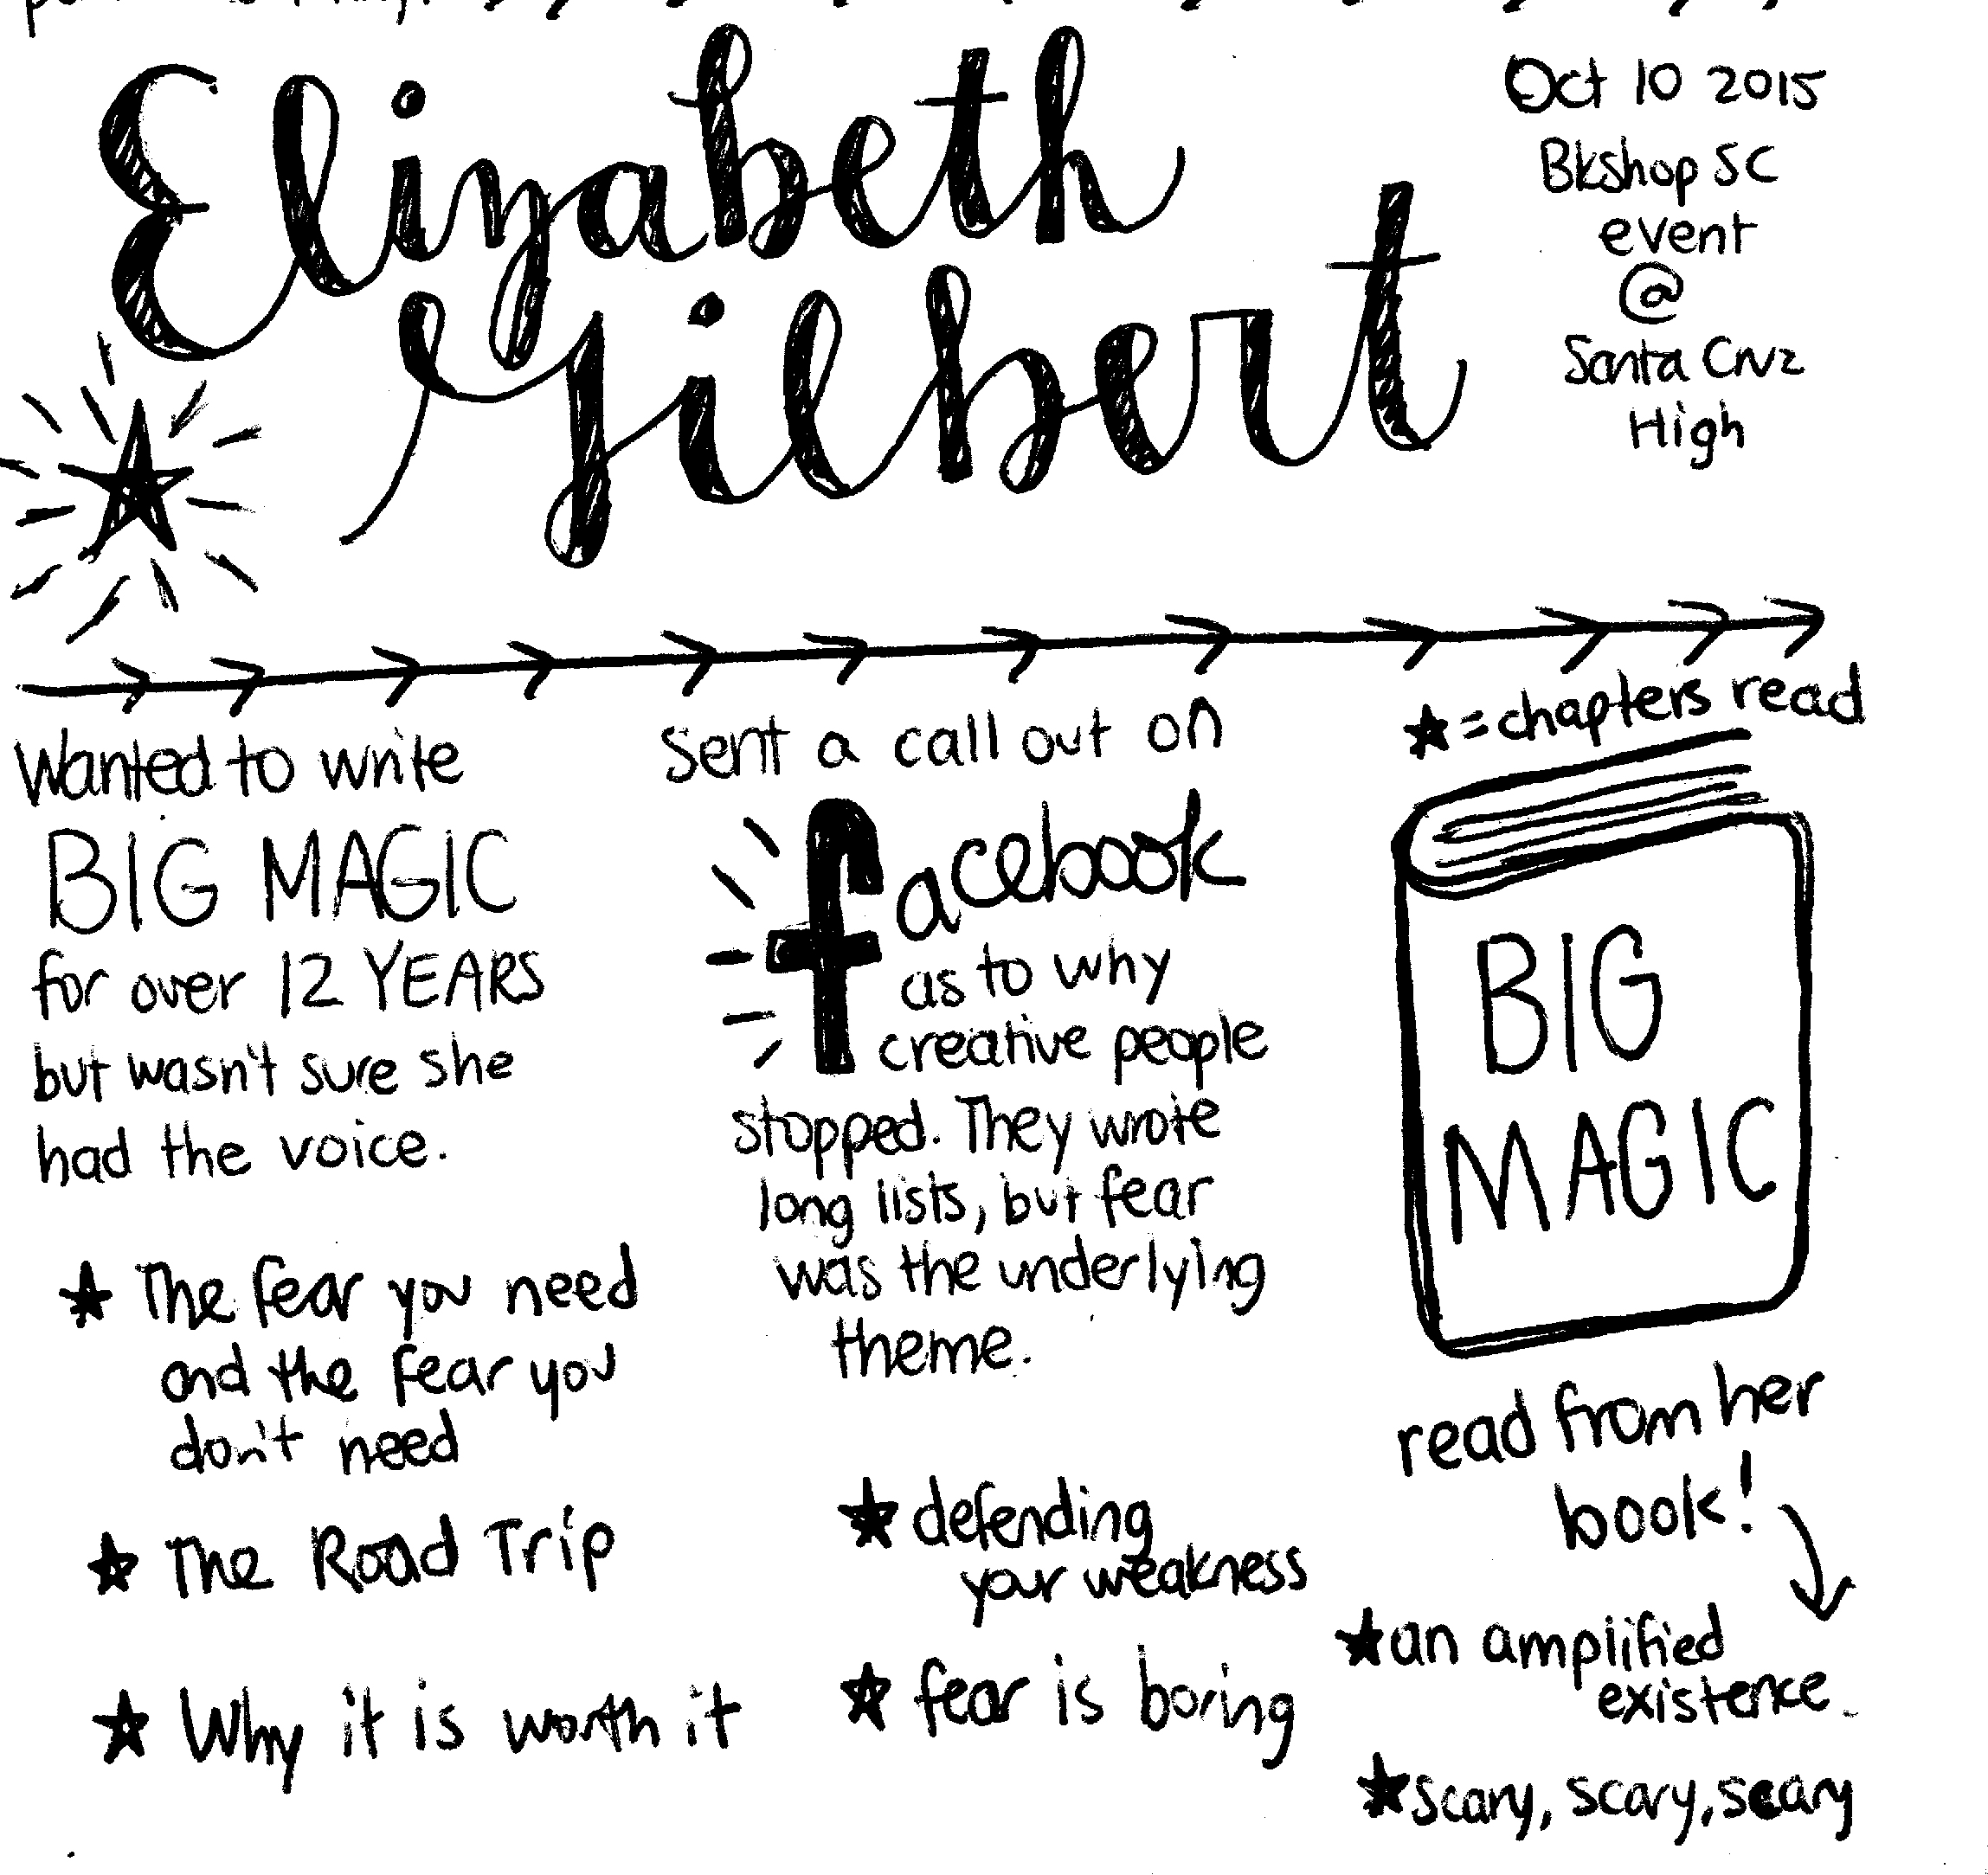 Elizabeth
Gilbert
Oct 10 2015
Bkshop SC
event
@
Santa Cruz
High
Wanted to write
BIG MAGIC
for over 12 YEARS
but wasn't sure she
had the voice.
★ The fear you need
and the fear you
don't need
★ The Road Trip
★ Why it is worth it
Sent a call out on
facebook
as to why
creative people
stopped. They wrote
long lists, but fear
was the underlying
theme.
★ defending
your weakness
★ fear is boring
★ = chapters read
BIG
MAGIC
read from her
book!
★ an amplified
existence.
★ scary, scary, scary